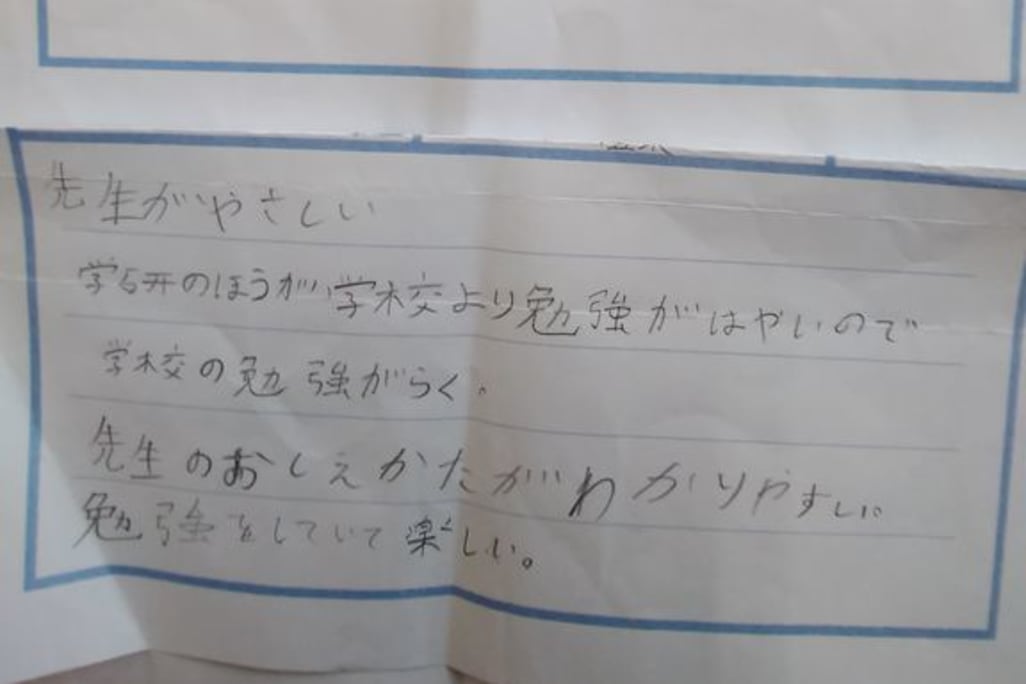 先生がやさしい
学研のほうが学校より勉強がはやいので
学校の勉強がらく。
先生のおしえかたがわかりやすい
勉強をしていて楽しい。